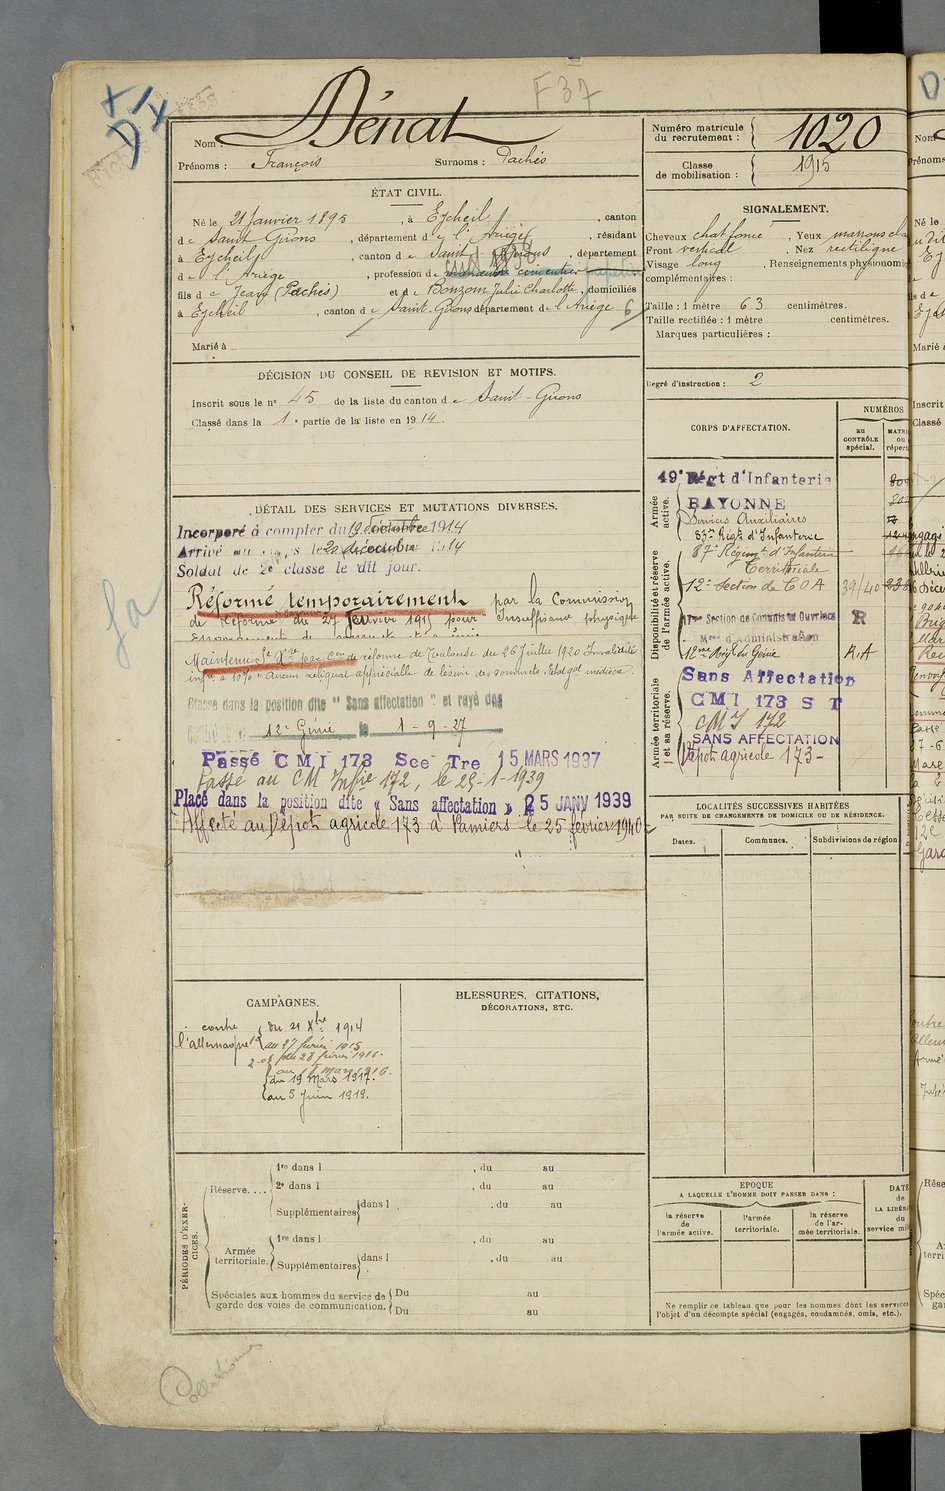 F37
Nom : Dénat
Prénoms : François Surnoms : Pachés
Numéro matricule du recrutement : 1020
Classe de mobilisation : 1915
ÉTAT CIVIL.
Né le 21 Janvier 1895, à Eycheil, canton
de Saint Girons, département de l'Ariège, résidant
à Eycheil, canton de Saint Girons, département
de l'Ariège, profession de cimentier
fils de Jean (Pachés) et de Bonzom Julie Charlotte, domiciliés
à Eycheil, canton de Saint-Girons département de l'Ariège 6
Marié à
SIGNALEMENT.
Cheveux chat foncé, Yeux marrons
Front vertical, Nez rectiligne
Visage long, Renseignements physionomi
complémentaires :
Taille : 1 mètre 63 centimètres.
Taille rectifiée : 1 mètre centimètres.
Marques particulières :
Degré d'instruction : 2
DÉCISION DU CONSEIL DE REVISION ET MOTIFS.
Inscrit sous le n° 45 de la liste du canton de Saint-Girons
Classé dans la 1e partie de la liste en 1914.
DÉTAIL DES SERVICES ET MUTATIONS DIVERSES.
Incorporé à compter du 19 1914
Arrivé au corps le 20 1914
Soldat de 2e classe le dit jour.
Réformé temporairement par la Commission
de Réforme du 27 février 1915 pour Insuffisance physique
Maintenu Sce Xre par Con de réforme de Toulouse du 26 Juillet 1920 Invalidité
infre à 10% "Aucun reliquat appréciable de lésion des sommets. Etat gal médiocre.
Classé dans la position dite "Sans affectation" et rayé des
12e Génie le 1-9-27
Passé CMI 173 Sce Tre 15 MARS 1937
Passé au CM Infie 172, le 25-1-1939
Placé dans la position dite « Sans affectation » 25 JANV 1939
Affecté au Dépôt agricole 173 à Pamiers le 25 février 1940
CORPS D'AFFECTATION.
NUMÉROS
au CONTRÔLE spécial.
Armée active.
49e Régt d'Infanterie
BAYONNE
Services Auxiliaires
83me Régt d'Infanterie
Disponibilité et réserve de l'armée active.
87e Régiment d'Infanterie
Territoriale
12e Section de C O A 39/40
17me Section de Commis et Ouvriers R
Mres d'Administration
12me Régt du Génie R.A
Armée territoriale et sa réserve.
Sans Affectation
CMI 173 S T
CMI 172
SANS AFFECTATION
Dépôt agricole 173-
LOCALITÉS SUCCESSIVES HABITÉES
PAR SUITE DE CHANGEMENTS DE DOMICILE OU DE RÉSIDENCE.
Dates. Communes. Subdivisions de région
CAMPAGNES.
contre l'allemagne
du 21 Xbre 1914
au 27 février 1915
du 28 février 1916.
du 19 Mars 1917.
au 5 Juin 1919.
BLESSURES, CITATIONS,
DÉCORATIONS, ETC.
PÉRIODES D'EXERCICES.
Réserve....
1re dans l , du au
2e dans l , du au
Supplémentaires dans l , du au
Armée territoriale.
1re dans l , du au
Supplémentaires dans l , du au
Spéciales aux hommes du service de garde des voies de communication.
Du au
Du au
EPOQUE
A LAQUELLE L'HOMME DOIT PASSER DANS :
la réserve de l'armée active.
l'armée territoriale.
la réserve de l'armée territoriale.
DATE
de
LA LIBÉR
du
service mil
Ne remplir ce tableau que pour les hommes dont les services
l'objet d'un décompte spécial (engagés, condamnés, omis, etc.).